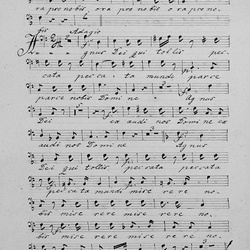 ra pro nobis, ora pro nobis ora pro no.
bis Adagio
Agnus Dei qui tollis pec.
cata peccata mundi parce
parce nobis Domine Agnus
Dei exaudi nos Domine ex
audi nos Domine Agnus
Dei qui tollis peccata peccata
peccata mundi misere rere no.
bis misere rere misere rere no.
bis misere rere misere rere no.
bis